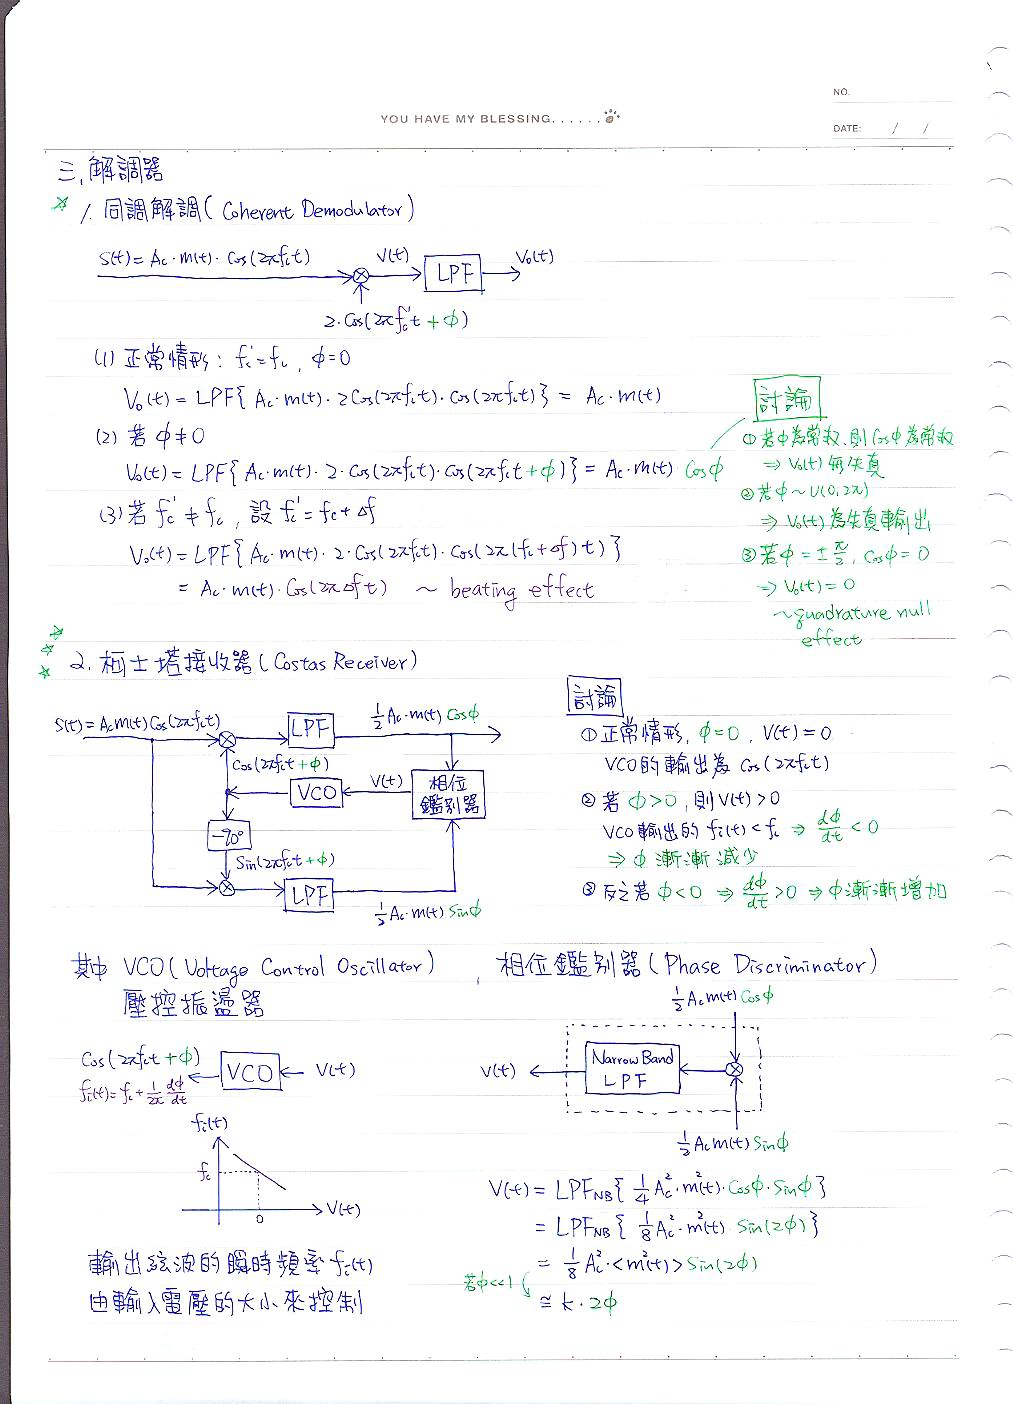 NO.
YOU HAVE MY BLESSING......
DATE: / /
三, 解調器
☆ 1. 同調解調 ( Coherent Demodulator )
S(t) = Ac·m(t)·Cos(2πfct)
V(t)
LPF
Vo(t)
2·Cos(2πfc't + φ)
(1) 正常情形: fc' = fc , φ = 0
Vo(t) = LPF{ Ac·m(t)·2Cos(2πfct)·Cos(2πfct)} = Ac·m(t)
(2) 若 φ ≠ 0
Vo(t) = LPF{ Ac·m(t)·2·Cos(2πfct)·Cos(2πfct + φ)} = Ac·m(t) Cosφ
(3) 若 fc' ≠ fc , 設 fc' = fc + Δf
Vo(t) = LPF{ Ac·m(t)·2·Cos(2πfct)·Cos(2π(fc+Δf)t)}
= Ac·m(t)·Cos(2πΔft) ~ beating effect
討論
① 若φ為常數, 則 Cosφ為常數
⇒ Vo(t) 無失真
② 若φ ~ U(0, 2π)
⇒ Vo(t) 為失真輸出
③ 若φ = ± π/2, Cosφ = 0
⇒ Vo(t) = 0
~ quadrature null
effect
☆☆☆ 2. 柯士塔接收器 ( Costas Receiver )
S(t) = Acm(t)Cos(2πfct)
LPF
1/2 Ac·m(t) Cosφ
Cos(2πfct + φ)
VCO
V(t)
相位
鑑別器
-90°
Sin(2πfct + φ)
LPF
1/2 Ac·m(t) Sinφ
討論
① 正常情形, φ = 0 , V(t) = 0
VCO的輸出為 Cos(2πfct)
② 若 φ > 0 , 則 V(t) > 0
VCO 輸出的 fi(t) < fc ⇒ dφ/dt < 0
⇒ φ 漸漸減少
③ 反之若 φ < 0 ⇒ dφ/dt > 0 ⇒ φ漸漸增加
其中 VCO ( Voltage Control Oscillator ) , 相位鑑別器 ( Phase Discriminator )
壓控振盪器
Cos(2πfct + φ)
fi(t) = fc + 1/2π dφ/dt
VCO
V(t)
fi(t)
fc
0
V(t)
輸出弦波的瞬時頻率 fi(t)
由輸入電壓的大小來控制
1/2 Acm(t) Cosφ
V(t)
Narrow Band
LPF
1/2 Acm(t) Sinφ
V(t) = LPFNB{ 1/4 Ac²·m²(t)·Cosφ·Sinφ}
= LPFNB{ 1/8 Ac²·m²(t)·Sin(2φ)}
= 1/8 Ac²·<m²(t)>Sin(2φ)
若φ<<1
≅ k·2φ